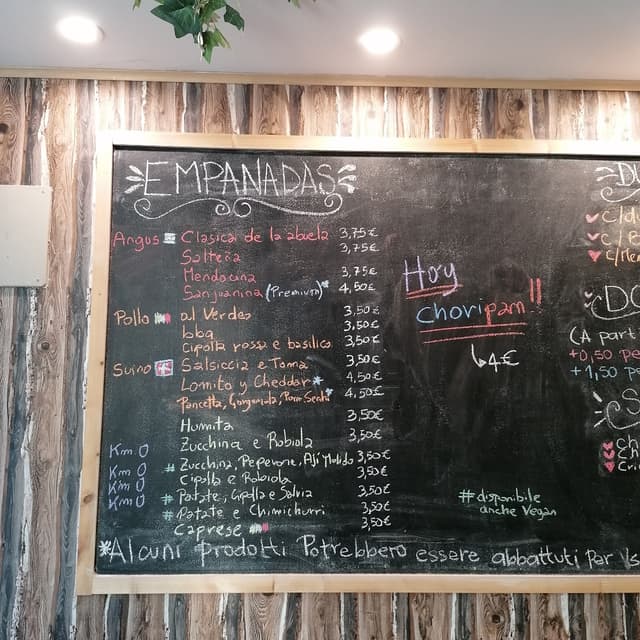 EMPANADAS
Angus Clasica de la abuela 3,75€
Salteña 3,75€
Mendocina 3,75€
Sanjuanina (Premium)* 4,50€
Pollo al Verdeo 3,50€
3,50€
Cipolla rossa e basilico 3,50€
Suino Salsiccia e Toma 3,50€
Lomito y Cheddar* 4,50€
Pancetta, Gorgonzola, Pomo Secchi* 4,50€
Humita 3,50€
Km 0 Zucchina e Robiola 3,50€
# Zucchina, Peperone, Ají Molido 3,50€
Km 0 Cipolla e Robiola 3,50€
Km 0 # Patate, Cipolla e Salvia 3,50€
Km 0 # Patate e Chimichurri 3,50€
Caprese 3,50€
*Alcuni prodotti Potrebbero essere abbattuti Per
Hoy
choripam!!
4€
# disponibile
anche Vegan
C/
C/
C/
(A part
+0,50 pe
+1,50 p